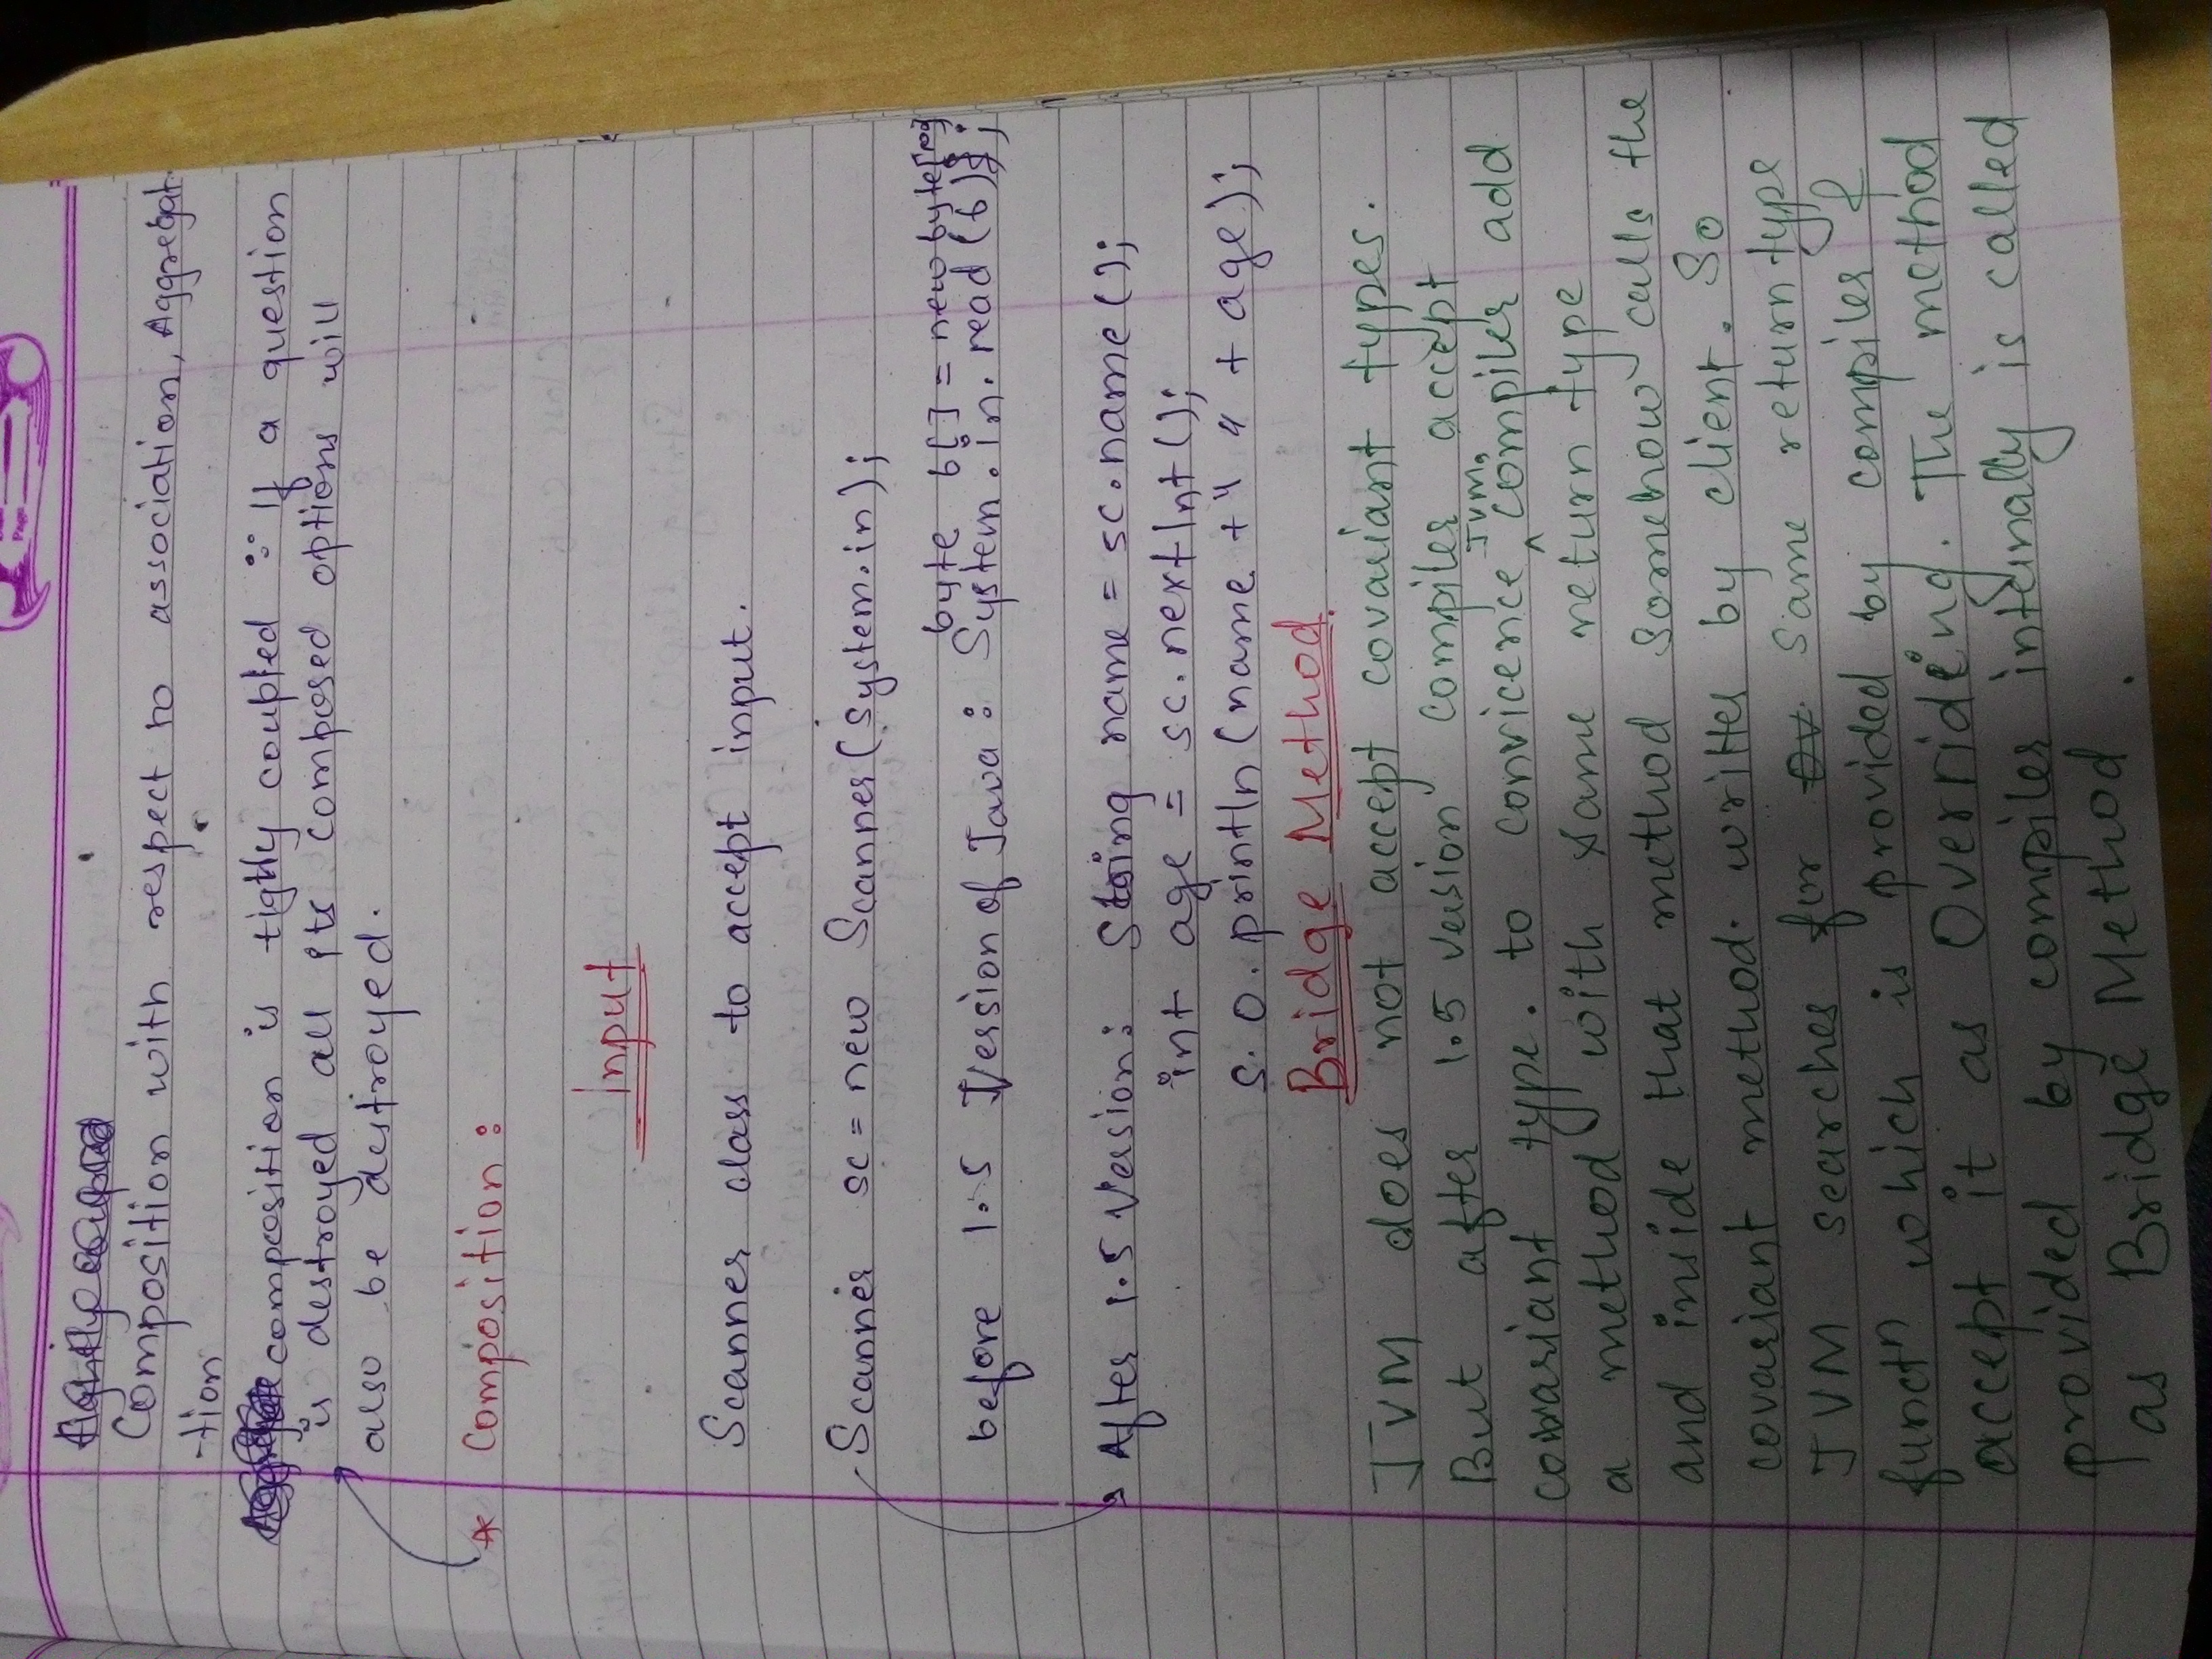 Page
Tightly coupled
Composition with respect to association, Aggregat-
-tion
composition is tigtly coupled ∵ If a question
is destroyed all its composed options will
also be destroyed.
* Composition :
Input
Scanner class to accept input.
Scanner sc = new Scanner(System.in);
byte b[] = new byte[100]
before 1.5 Version of Java : System.in.read(b);
After 1.5 Version: String name = sc.name();
int age = sc.nextInt();
s.o.println(name + " " + age);
Bridge Method.
JVM does not accept covariant types.
But after 1.5 version compiler accept
JVM,
covariant type. to convicence ^ compiler add
a method with same return type
and inside that method somehow calls the
covariant method. writter by client. So
JVM searches for ov. same return type
functn which is provided by compiler &
accept it as Overriding. The method
provided by compiler internally is called
as Bridge Method.